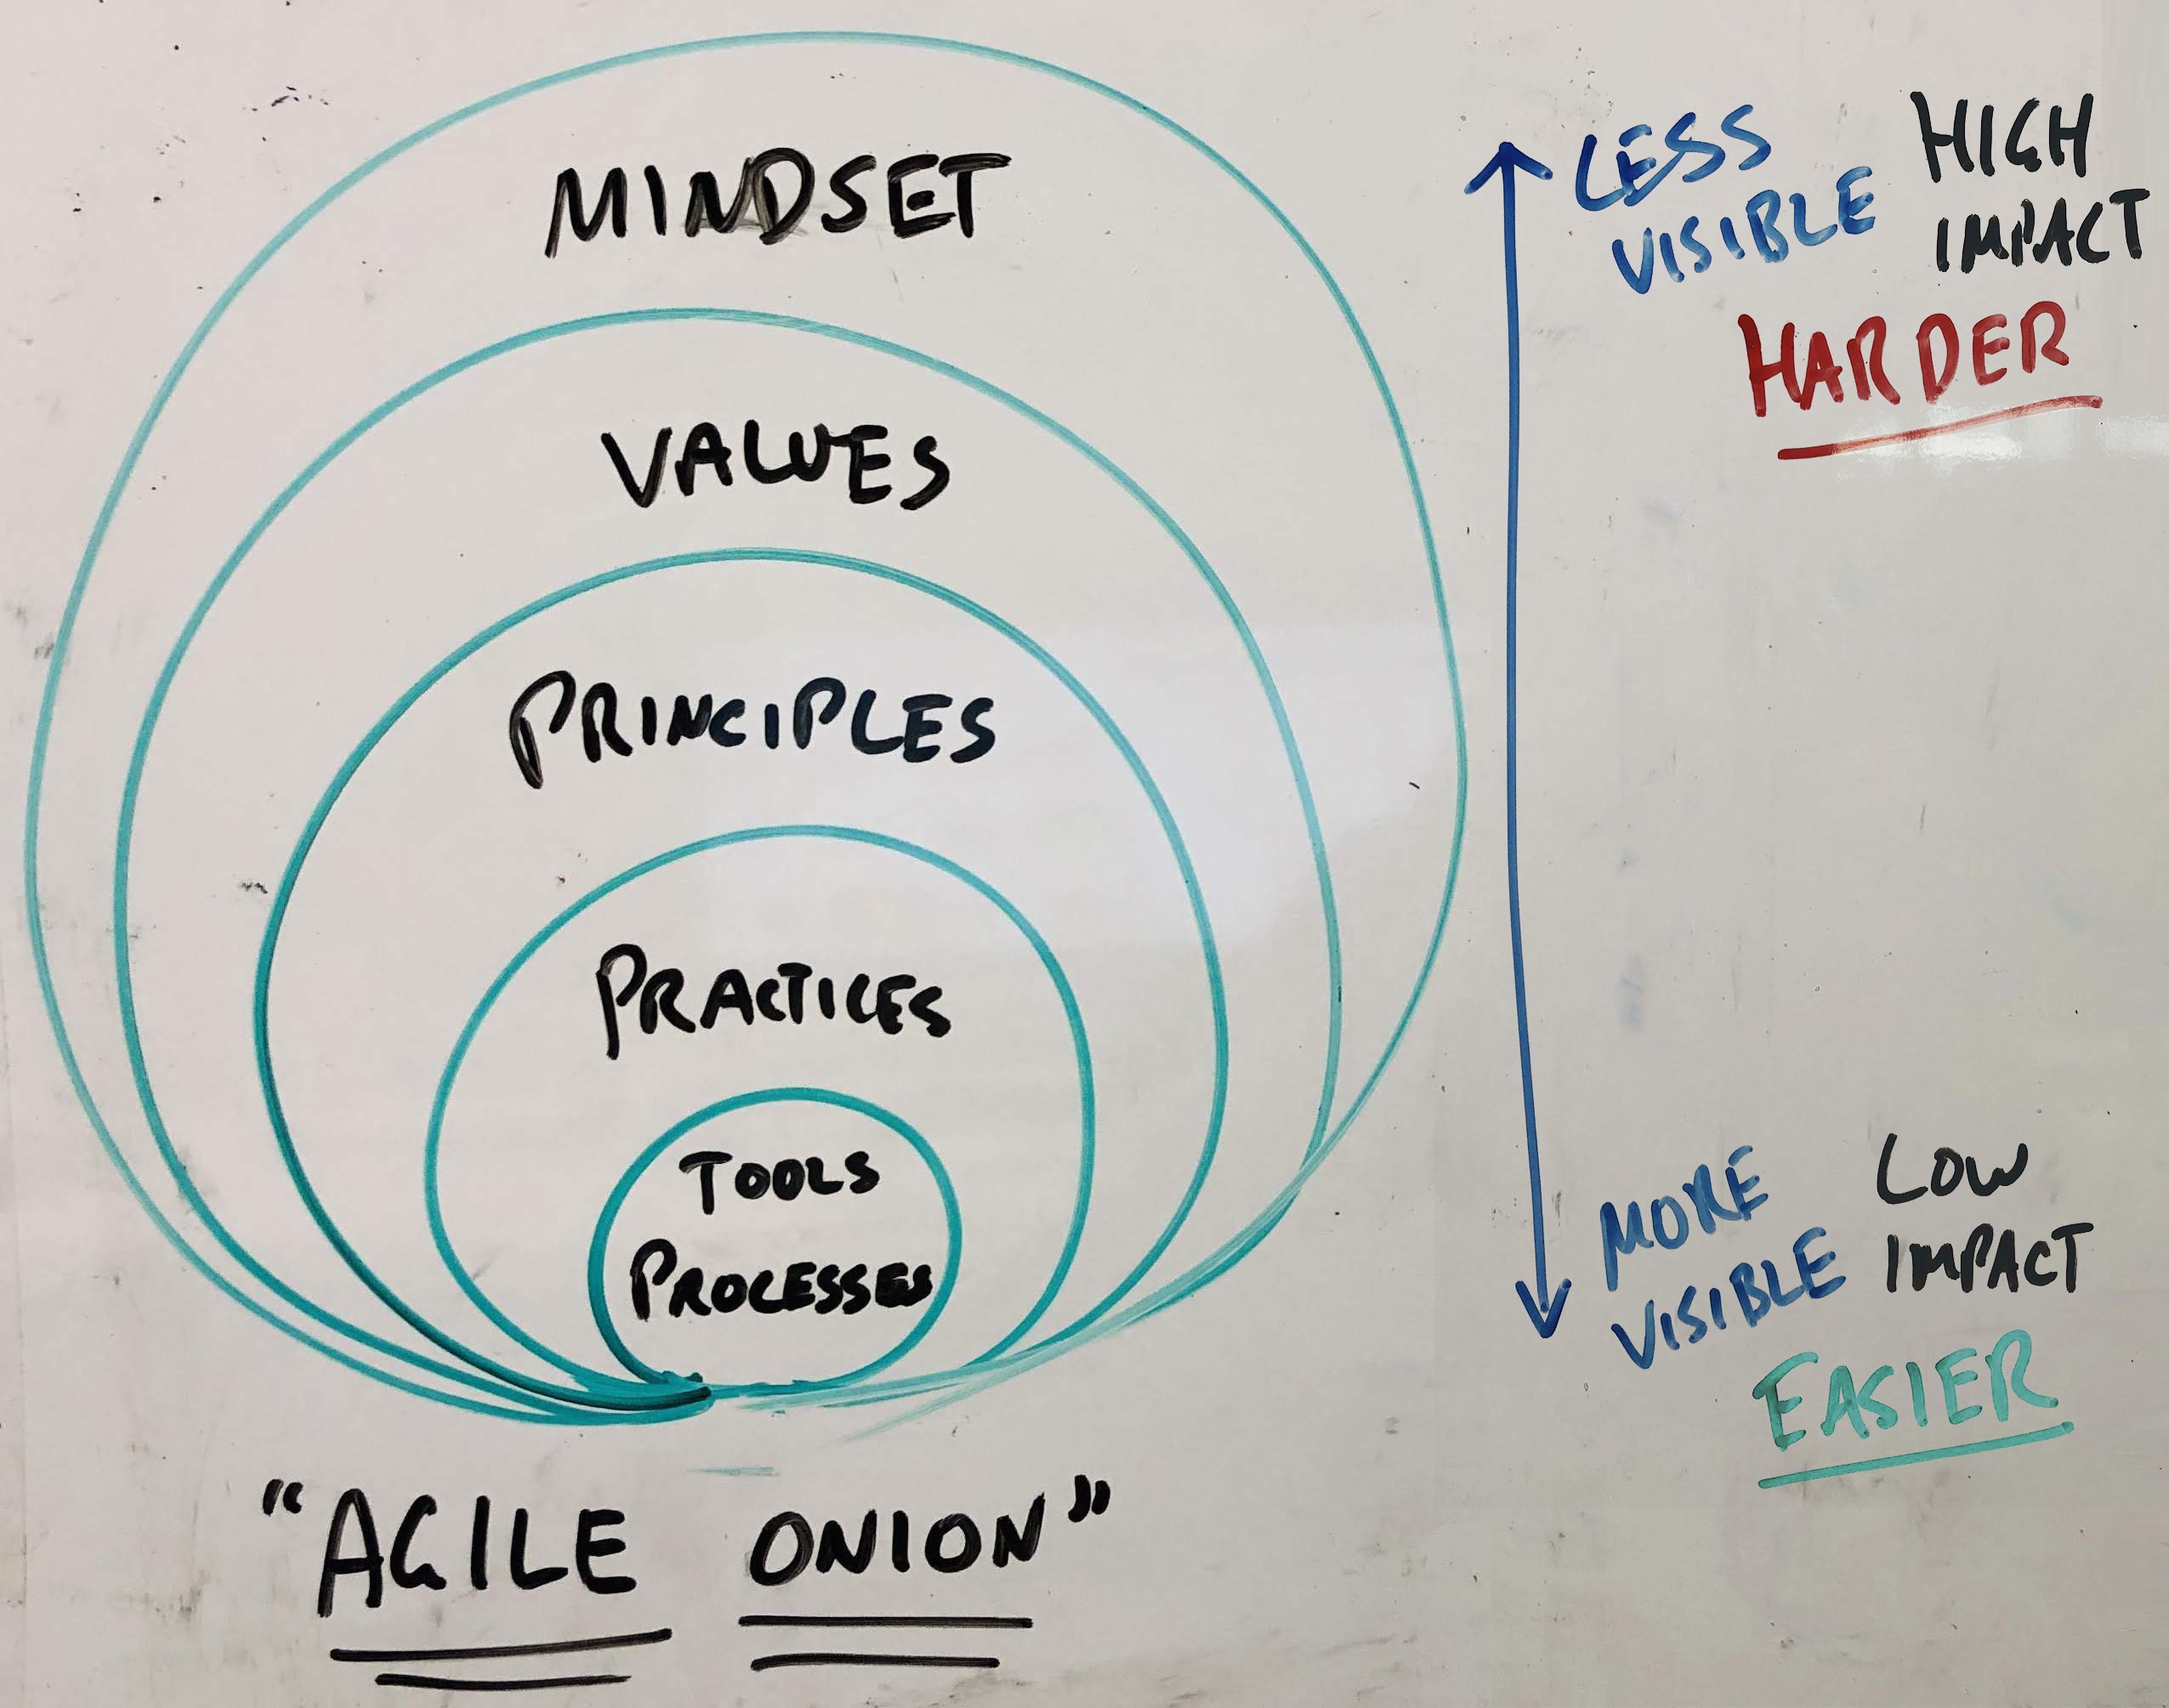 MINDSET
VALUES
PRINCIPLES
PRACTICES
TOOLS
PROCESSES
"AGILE ONION"
LESS
VISIBLE
HIGH
IMPACT
HARDER
MORE
VISIBLE
LOW
IMPACT
EASIER